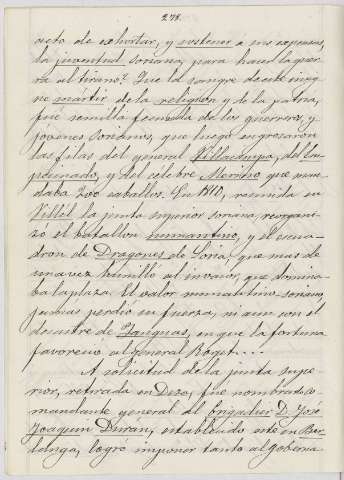 278.
acto de exhortar, y sostener a sus expensas,
la juventud soriana, para hacer la guer-
ra al tirano? Fue la sangre de este insig-
ne martir de la religion y de la patria,
fue semilla fecunda de los guerreros, y
jovenes sorianos, que luego engrosaron
las filas del general Villacampa, del Em-
pecinado, y del celebre Merino que man-
daba 200 caballos. En 1810, reunida en
Villel la junta superior soriana, reorgani-
zó el batallon numantino, y el escua-
dron de Dragones de Soria, que mas de
una vez humilló al invasor, que domina-
ba la plaza. El valor numantino soriano,
jamas perdio su fuerza, ni aun con el
desastre de Yanguas, en que la fortuna
favorecio al general Roget....
A solicitud de la junta supe-
rior, retirada en Deza, fue nombrado co-
mandante general el brigadier D. José
Joaquin Duran, establecido este en Ber-
langa, logró imponer tanto al goberna-